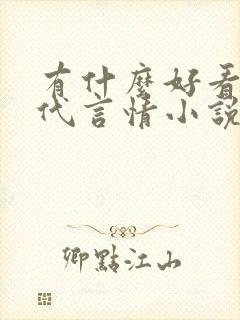 有什麼好看
代言情小說
卿點江山